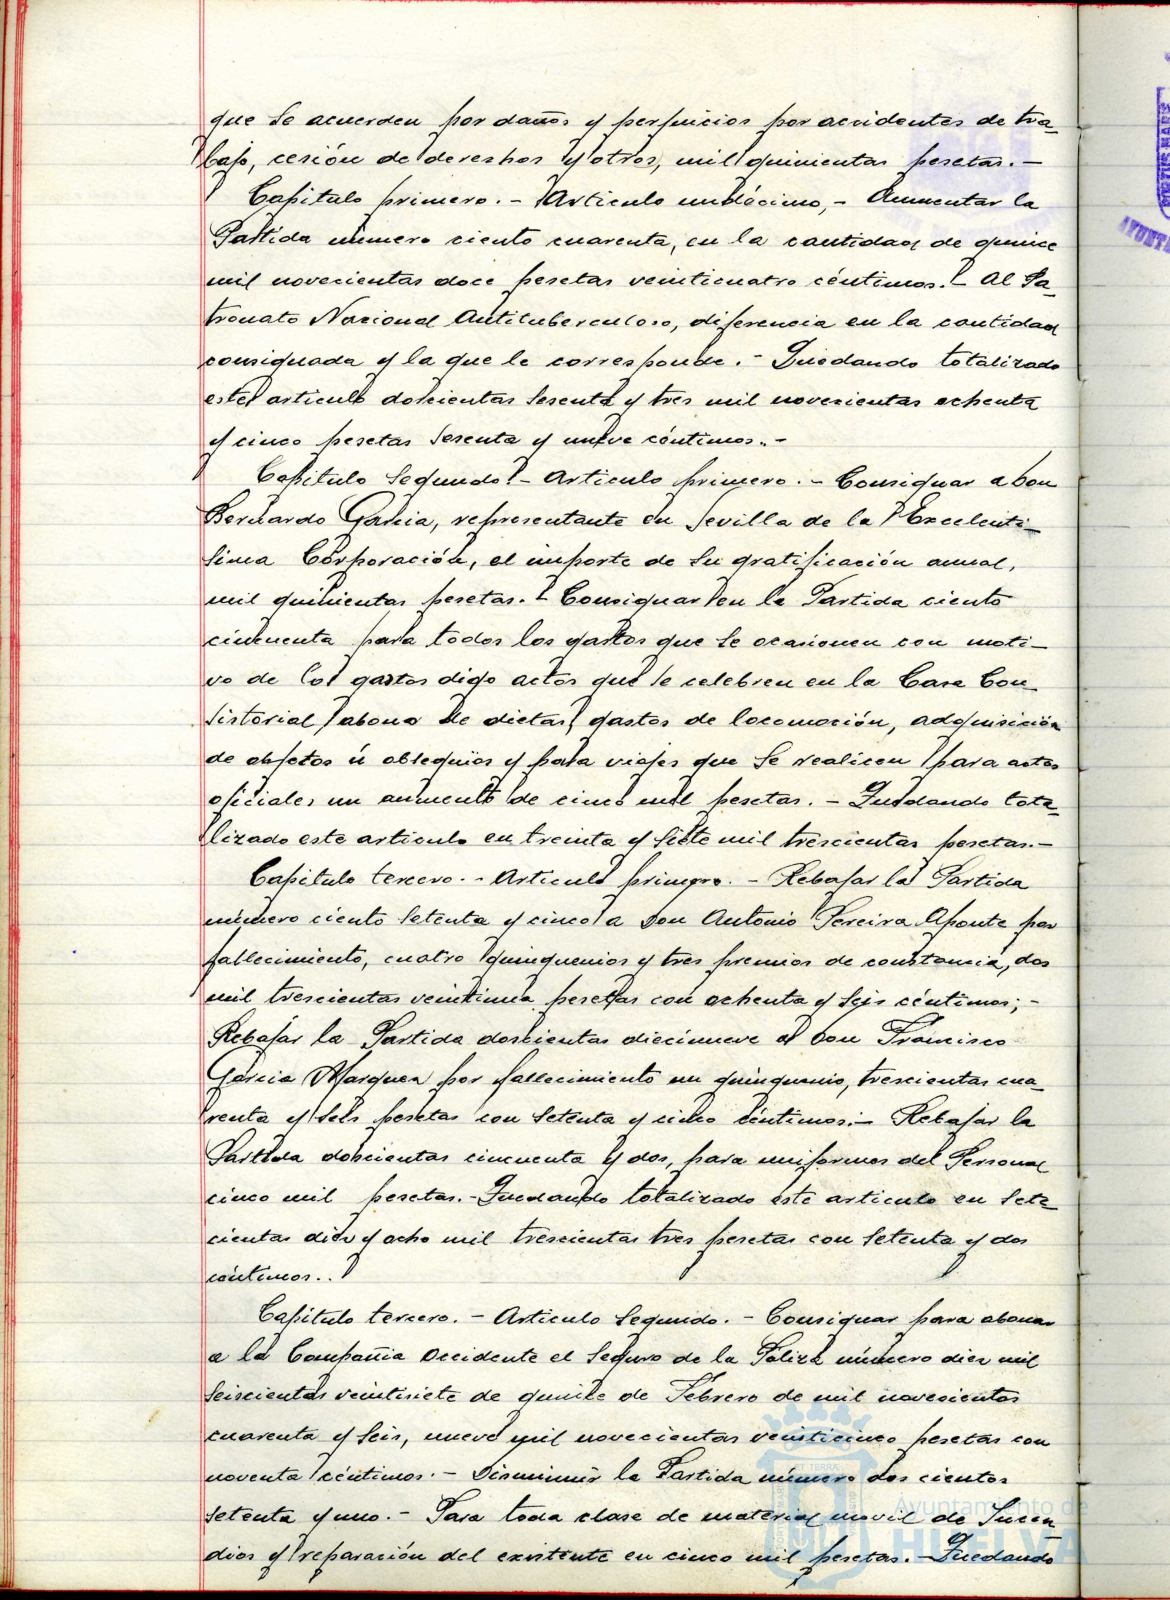 que se acuerden por daños y perjuicios por accidentes de tra-
bajo, cesión de derechos y otros, mil quinientas pesetas.-
Capitulo primero.- Articulo undécimo,- Aumentar la
Partida número ciento cuarenta, en la cantidad de quince
mil novecientas doce pesetas veinticuatro céntimos.- Al Pa-
tronato Nacional Antituberculoso, diferencia en la cantidad
consignada y la que le corresponde.- Quedando totalizado
este articulo doscientas sesenta y tres mil novecientas ochenta
y cinco pesetas sesenta y nueve céntimos..-
Capitulo Segundo.- Articulo primero.- Consignar a Don
Bernardo Garcia, representante en Sevilla de la Excelenti-
sima Corporación, el importe de su gratificación anual,
mil quinientas pesetas.- Consignar en la Partida ciento
cincuenta para todos los gastos que se ocasionen con moti-
vo de los gastos digo actos que se celebren en la Casa Con-
sistorial, abono de dietas, gastos de locomoción, adquisición
de objetos ú obsequios y para viajes que se realicen para actos
oficiales un aumento de cinco mil pesetas.- Quedando tota-
lizado este articulo en treinta y siete mil trescientas pesetas.-
Capitulo tercero.- Articulo primero.- Rebajar la Partida
número ciento setenta y cinco a Don Antonio Pereira Aponte por
fallecimiento, cuatro quinquenios y tres premios de constancia, dos
mil trescientas veintiuna pesetas con ochenta y seis céntimos;-
Rebajar la Partida doscientas diecinueve a Don Francisco
Garcia Marquez por fallecimiento un quinquenio, trescientas cua-
renta y seis pesetas con setenta y cinco céntimos:- Rebajar la
Partida doscientas cincuenta y dos, para uniformes del Personal
cinco mil pesetas.- Quedando totalizado este articulo en sete-
cientas diez y ocho mil trescientas tres pesetas con setenta y dos
céntimos..
Capitulo tercero.- Articulo Segundo.- Consignar para abonar
a la Compañia Occidente el Seguro de la Poliza número diez mil
seiscientas veintisiete de quince de Febrero de mil novecientos
cuarenta y seis, nueve mil novecientas veinticinco pesetas con
noventa céntimos.- Disminuir la Partida número dos cientos
setenta y uno.- Para toda clase de material movil de Incen-
dios y reparación del existente en cinco mil pesetas.- Quedando
Ayuntamiento de
HUELVA